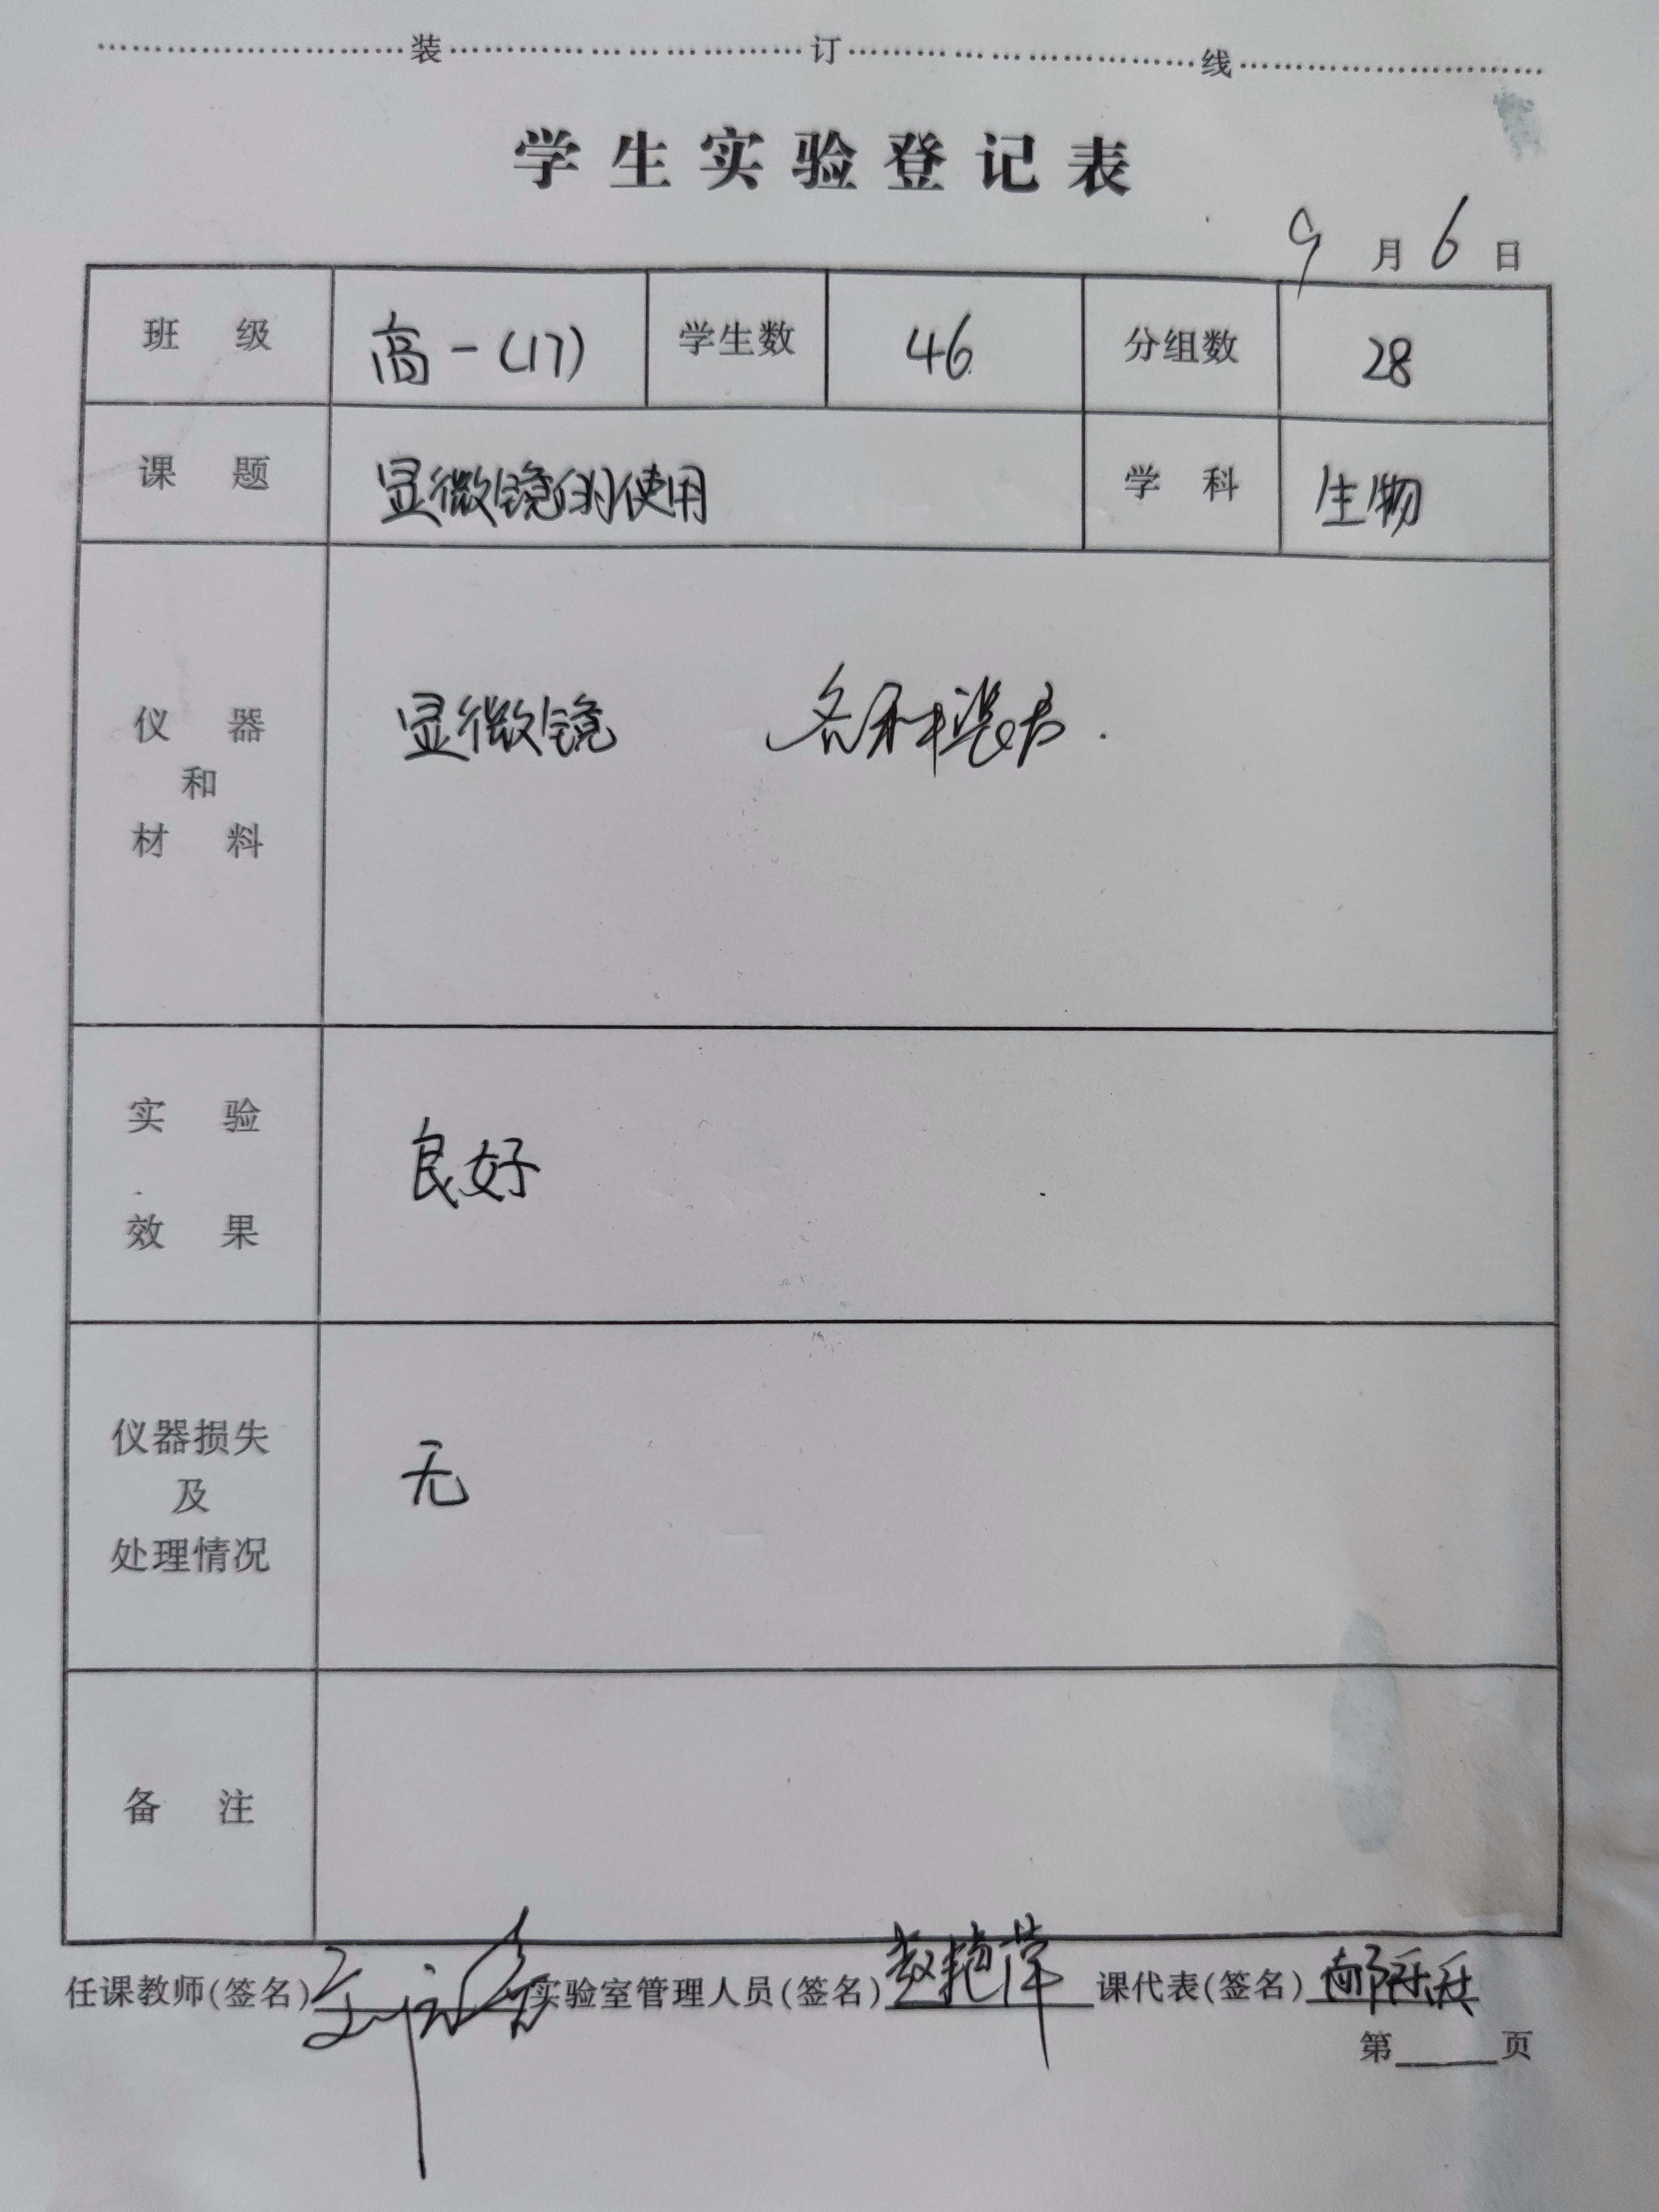 装 订 线
学生实验登记表
9 月 6 日
班 级 高一(17) 学生数 46 分组数 28
课 题 显微镜的使用 学 科 生物
仪 器
和
材 料
显微镜 各种装片.
实 验
效 果
良好
仪器损失
及
处理情况
无
备 注
任课教师(签名) 实验室管理人员(签名) 赵艳萍 课代表(签名)
第 页